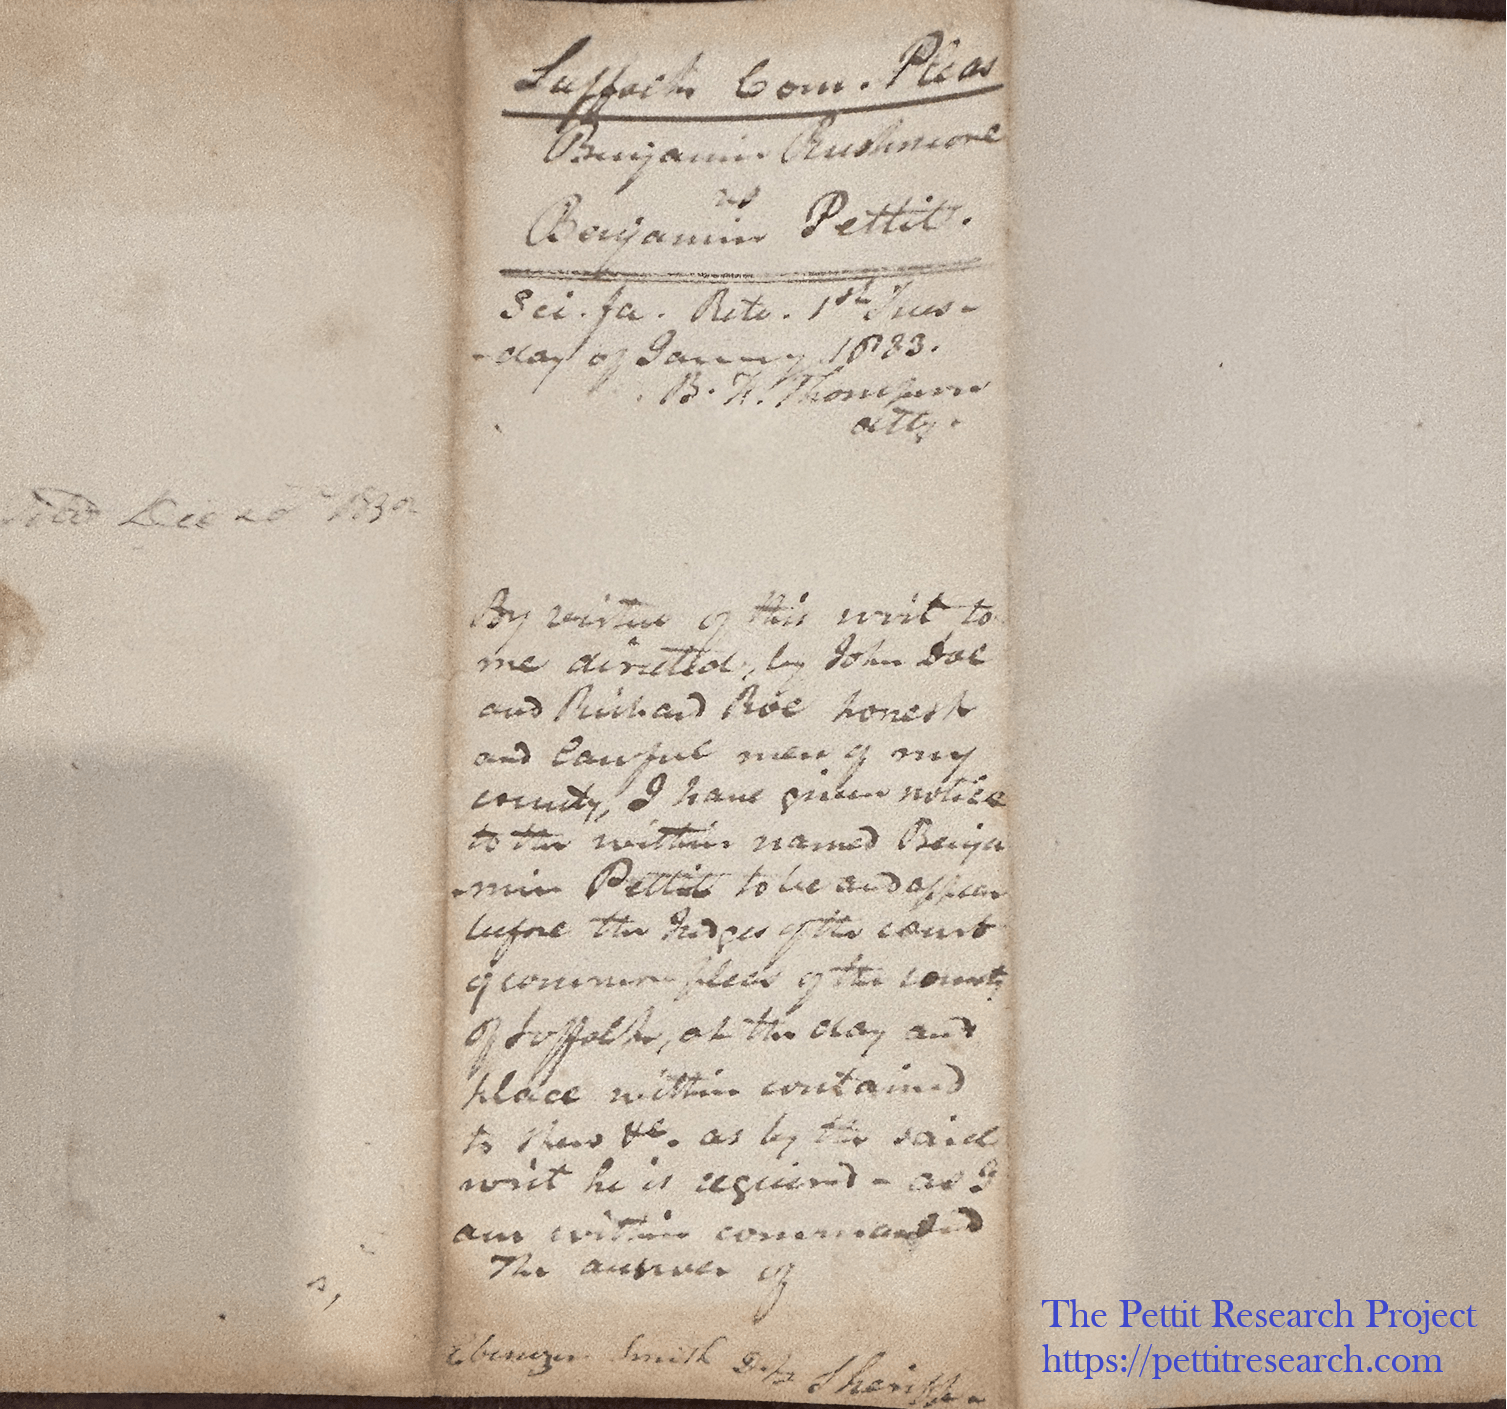 Suffolk Com. Pleas
Benjamin Rushmore
vs
Benjamin Pettit.
Sci. fa. Retr. 1st Tues-
-day of January 1833.
B. F. Thompson
atty.
Dec 1832
By virtue of this writ to
me directed, by John Doe
and Richard Roe honest
and lawful men of my
county, I have given notice
to the within named Benja
-min Pettit to be and appear
before the Judges of the court
of common pleas of the county
of Suffolk, at the day and
place within contained
to shew &c. as by the said
writ he is required - as I
am within commanded
The answer of
Ebenezer Smith Dep. Sheriff.
The Pettit Research Project
https://pettitresearch.com